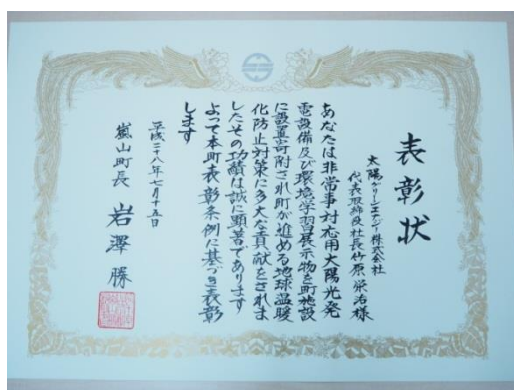 表彰状
太陽グリーンエナジー株式会社
代表取締役社長 竹原栄治様
あなたは非常事対応用太陽光発
電設備及び環境学習展示物を町施設
に設置寄附され町が進める地球温暖
化防止対策に多大な貢献をされま
したその功績は誠に顕著であります
よって本町表彰条例に基づき表彰
します
平成二十八年七月十五日
嵐山町長 岩澤勝